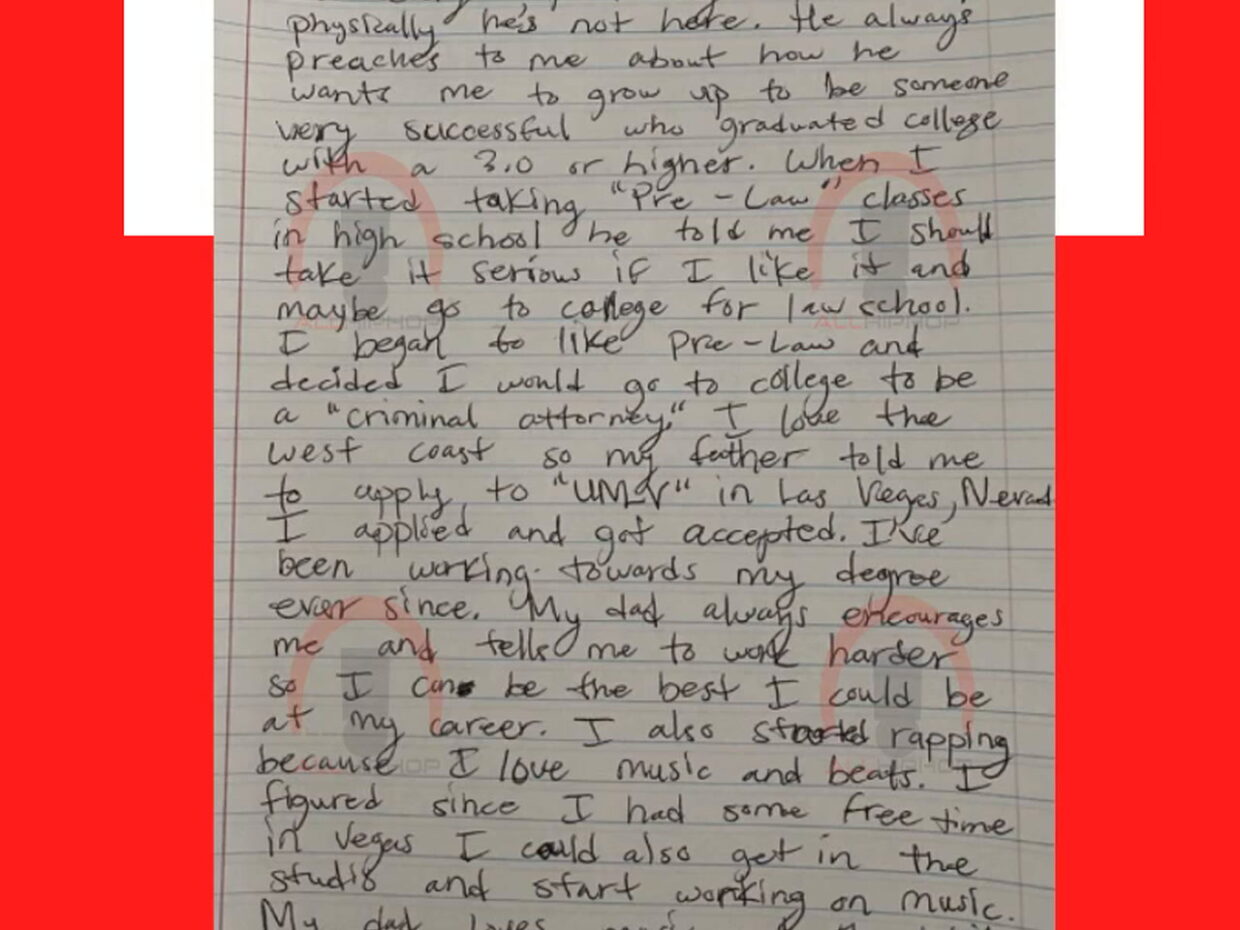 physically he's not here. He always
preaches to me about how he
wants me to grow up to be someone
very successful who graduated college
with a 3.0 or higher. When I
started taking "Pre-Law" classes
in high school he told me I should
take it serious if I like it and
maybe go to college for law school.
I began to like Pre-Law and
decided I would go to college to be
a "criminal attorney." I love the
west coast so my father told me
to apply to in Las Vegas, Nevad
I applied and got accepted. I've
been working towards my degree
ever since. My dad always encourages
me and tells me to work harder
so I can be the best I could be
at my career. I also started rapping
because I love music and beats. I
figured since I had some free time
in Vegas I could also get in the
studio and start working on music.
My dad loves
ALLHIPHOP
ALLHIPHOP